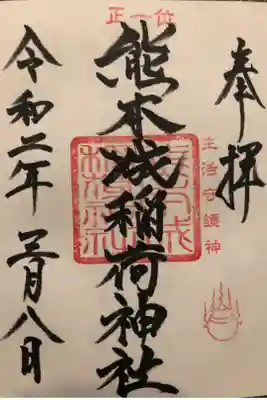 奉拝
正一位
熊本城稲荷神社
主治守護神
令和二年三月八日